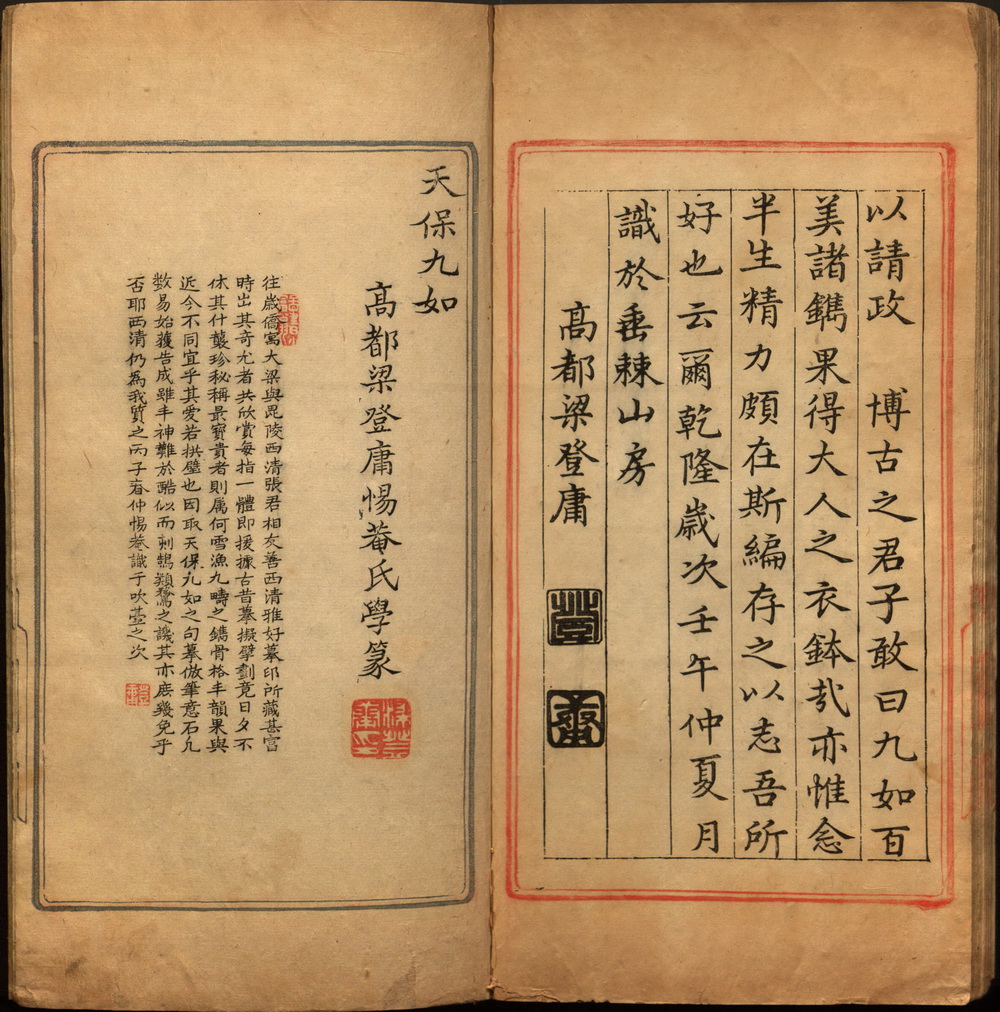 以請政 博古之君子敢曰九如百
美諸鐫果得大人之衣鉢哉亦惟念
半生精力頗在斯編存之以志吾所
好也云爾乾隆歲次壬午仲夏月
識於垂棘山房
高都梁登庸
登
庸
天保九如
高都梁登庸惕菴氏學篆
梁登庸印
往歲僑寓大梁與毘陵西清張君相友善西清雅好摹印所藏甚富
時出其奇尤者共欣賞每指一體即援據古昔摹擬擘劃竟日夕不
休其什襲珍秘稱最寶貴者則属何雪漁九疇之鐫骨格丰韻果與
近今不同宜乎其愛若拱璧也因取天保九如之句摹倣筆意石凢
数易始獲告成雖丰神難於酷似而刺鵠類鶩之譏其亦庶幾免乎
否耶西清仍為我質之丙子春仲惕菴識于吹臺之次